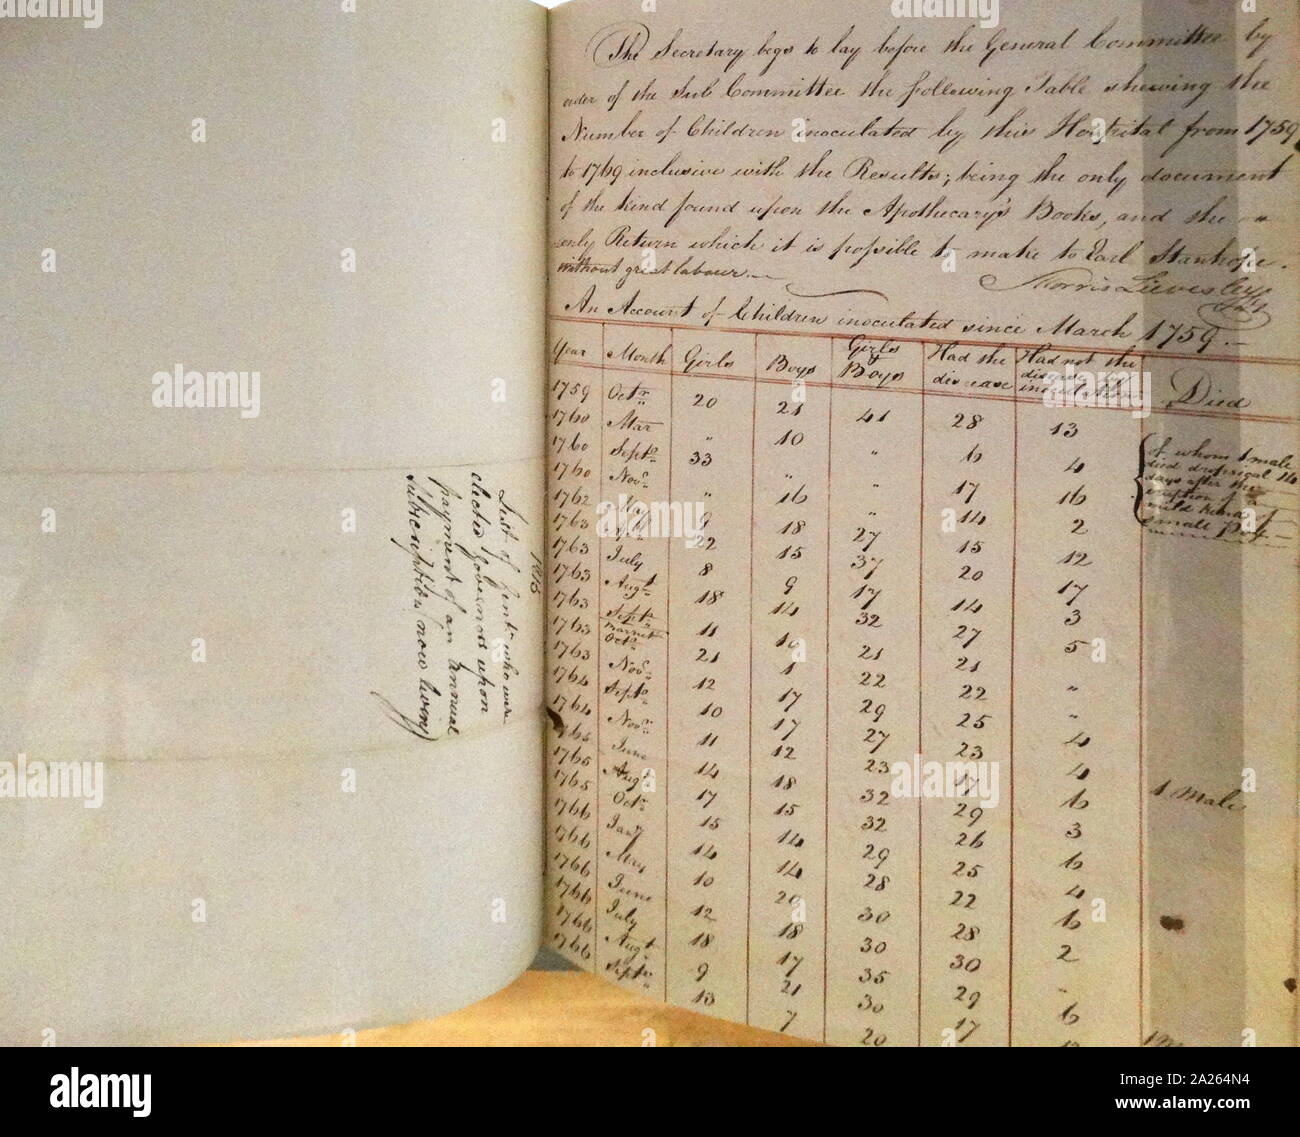 1815
List of Gentn. who were
elected Governors upon
payment of an Annual
subscription now living
The Secretary begs to lay before the General Committee by
order of the Sub Committee the following Table shewing the
Number of Children inoculated by this Hospital from 1759
to 1769 inclusive with the Results; being the only document
of the kind found upon the Apothecary's Books, and the
only Return which it is possible to make to Earl Stanhope.
without great labour.—
Morris Lievesley
An Account of Children inoculated since March 1759.—
Year Month Girls Boys Girls & Boys Had the disease Had not the disease by inoculation Died
1759 Octr. 20 21 41 28 13
1760 Mar " 10 " 6 4
1760 Septr. 33 " " 17 16
1760 Novr. " 16 " 14 2
1762 May 9 18 27 15 12
1763 Apl. 22 15 37 20 17
1763 July 8 9 17 14 3
1763 Augt. 18 14 32 27 5
1763 Septr. 11 10 21 21 "
1763 Octr. 21 1 22 22 "
1763 Novr. 12 17 29 25 4
1764 Septr. 10 17 27 23 4
1764 Novr. 11 12 23 17 6 1 Male
1765 June 14 18 32 29 3
1765 Augt. 17 15 32 26 6
1765 Octr. 15 14 29 25 4
1766 Jany 14 14 28 22 6
1766 May 10 20 30 28 2
1766 June 12 18 30 30 "
1766 July 18 17 35 29 6
1766 Augt. 9 21 30 17
1766 Septr. 13 7 20
of whom 1 male
died dropsical 14
days after the
eruption of a
mild kind of
Small Pox—
alamy
Image ID: 2A264N4
www.alamy.com